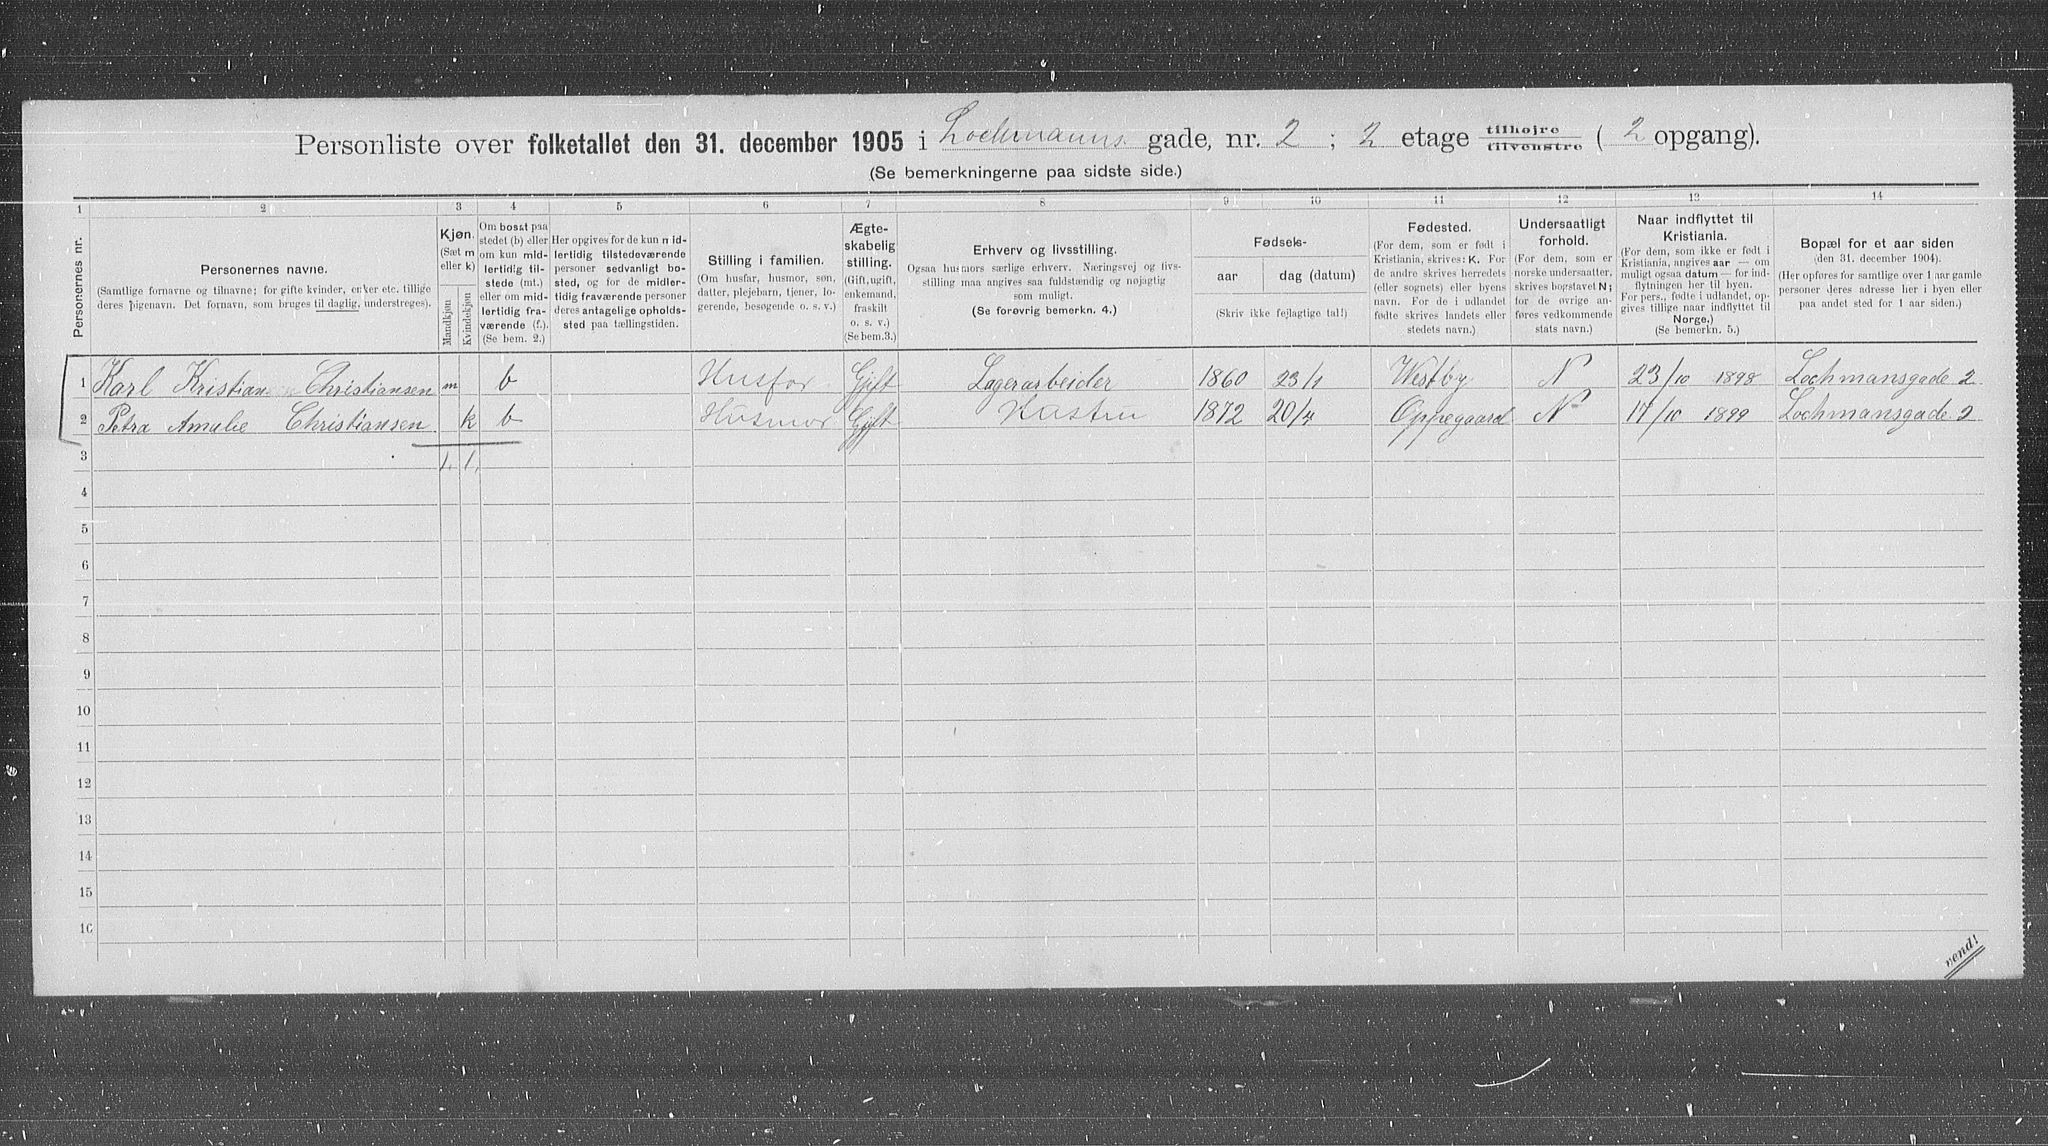 Personliste over folketallet den 31. december 1905 i Lochmanns gade, nr. 2 ; 2 etage tilhøjre tilvenstre ( 2 opgang).
(Se bemerkningerne paa sidste side.)
1 2 3 4 5 6 7 8 9 10 11 12 13 14
Personernes nr.
Personernes navne.
(Samtlige fornavne og tilnavne; for gifte kvinder, enker etc. tillige
deres pigenavn. Det fornavn, som bruges til daglig, understreges).
Kjøn.
(Sæt m
eller k)
Mandkjøn
Kvindekjøn
Om bosat paa
stedet (b) eller
om kun mid-
lertidig til-
stede (mt.)
eller om mid-
lertidig fra-
værende (f.).
(Se bem. 2.)
Her opgives for de kun mid-
lertidig tilstedeværende
personer sedvanligt bo-
sted, og for de midler-
tidig fraværende personer
deres antagelige opholds-
sted paa tællingstiden.
Stilling i familien.
(Om husfar, husmor, søn,
datter, plejebarn, tjener, lo-
gerende, besøgende o. s. v.)
Ægte-
skabelig
stilling.
(Gift, ugift,
enkemand,
fraskilt
o. s. v.)
(Se bem.3.)
Erhverv og livsstilling.
Ogsaa husmors særlige erhverv. Næringsvej og livs-
stilling maa angives saa fuldstændig og nøjagtig
som muligt.
(Se forøvrig bemerkn. 4.)
Fødsels-
aar dag (datum)
(Skriv ikke fejlagtige tal!)
Fødested.
(For dem, som er født i
Kristiania, skrives: K. For
de andre skrives herredets
(eller sognets) eller byens
navn. For de i udlandet
fødte skrives landets eller
stedets navn.)
Undersaatligt
forhold.
(For dem, som er
norske undersaatter,
skrives bogstavet N;
for de øvrige an-
føres vedkommende
stats navn.)
Naar indflyttet til
Kristiania.
(For dem, som ikke er født i
Kristiania, angives aar — om
muligt ogsaa datum — for ind-
flytningen her til byen.
For pers., fødte i udlandet, op-
gives tillige naar indflyttet til
Norge.)
(Se bemerkn. 5.)
Bopæl for et aar siden
(den 31. december 1904).
(Her opføres for samtlige over 1 aar gamle
personer deres adresse her i byen eller
paa andet sted for 1 aar siden.)
1 Karl Kristian Christiansen m b Husfar Gift Lagerarbeider 1860 23/1 Westby N 23/10 1898 Lochmansgade 2
2 Petra Amalie Christiansen k b Husmor Gift 1872 20/4 Oppegaard N 17/10 1899 Lochmansgade 2
3 1. 1.
4
5
6
7
8
9
10
11
12
13
14
15
16
vend!